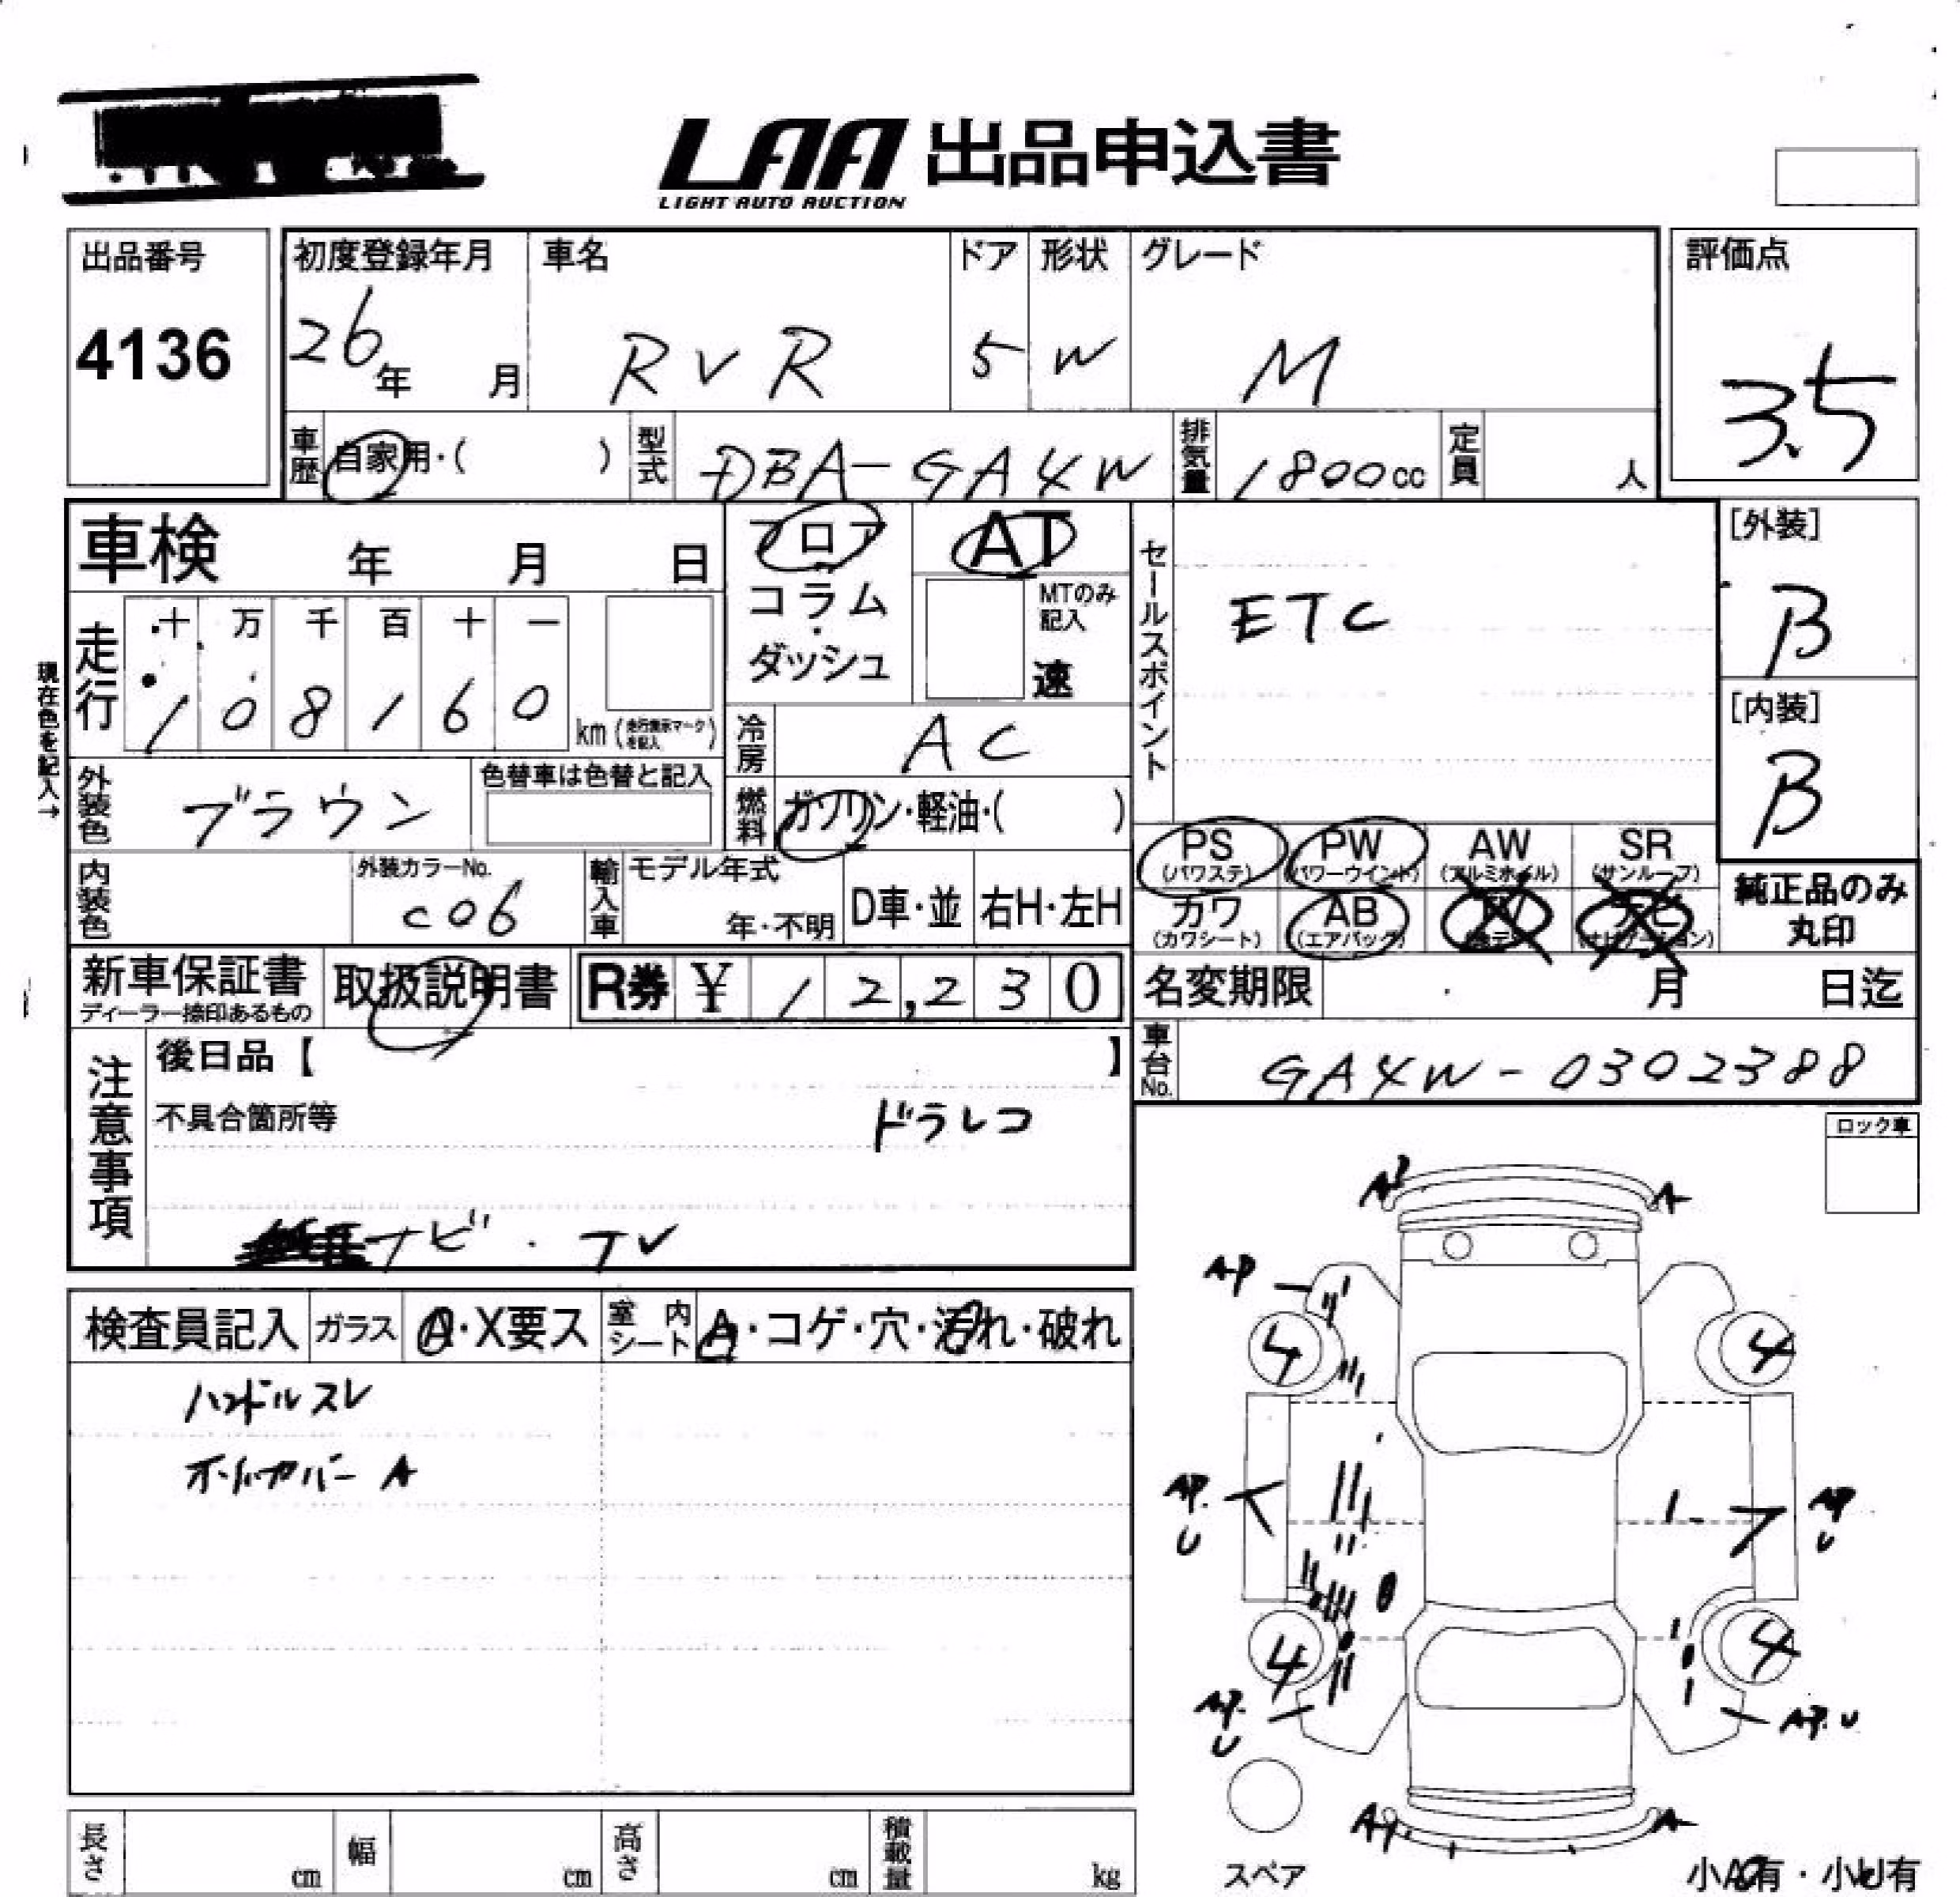 LAA 出品申込書
LIGHT AUTO AUCTION
出品番号
4136
初度登録年月
26年 月
車名
RVR
ドア
5
形状
W
グレード
M
評価点
3.5
車歴 自家用・( )
型式 DBA-GA4W
排気量 1800cc
定員 人
車検 年 月 日
フロア
コラム・
ダッシュ
AT
MTのみ
記入
速
セールスポイント
ETC
[外装]
B
[内装]
B
現在色を記入→
走行
十 万 千 百 十 一
1 0 8 1 6 0
km
冷房 AC
外装色 ブラウン
色替車は色替と記入
燃料 ガソリン・軽油・( )
内装色
外装カラーNo.
C06
輸入車
モデル年式
年・不明
D車・並
右H・左H
PS PW AW SR
(パワステ) (パワーウインド) (アルミホイル) (サンルーフ)
カワ AB
(カワシート) (エアバッグ)
純正品のみ
丸印
新車保証書
ディーラー捺印あるもの
取扱説明書
R券 ¥ 12,230
名変期限 月 日迄
車台No. GA4W-0302388
注意事項
後日品【 】
不具合箇所等
ドラレコ
ナビ・TV
ロック車
検査員記入
ガラス A・X要ス
室内シート A・コゲ・穴・汚れ・破れ
ハンドルスレ
A
A
A
AP
4
4
AP.
U
AP
U
4
4
AP.
U
AP.U
A
スペア
小A有・小U有
長さ cm
幅 cm
高さ cm
積載量 kg